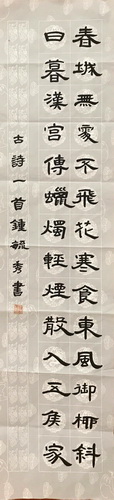 春城無處不飛花寒食東風御柳斜
日暮漢宮傳蠟燭輕煙散入五侯家
古詩一首鍾毓秀書